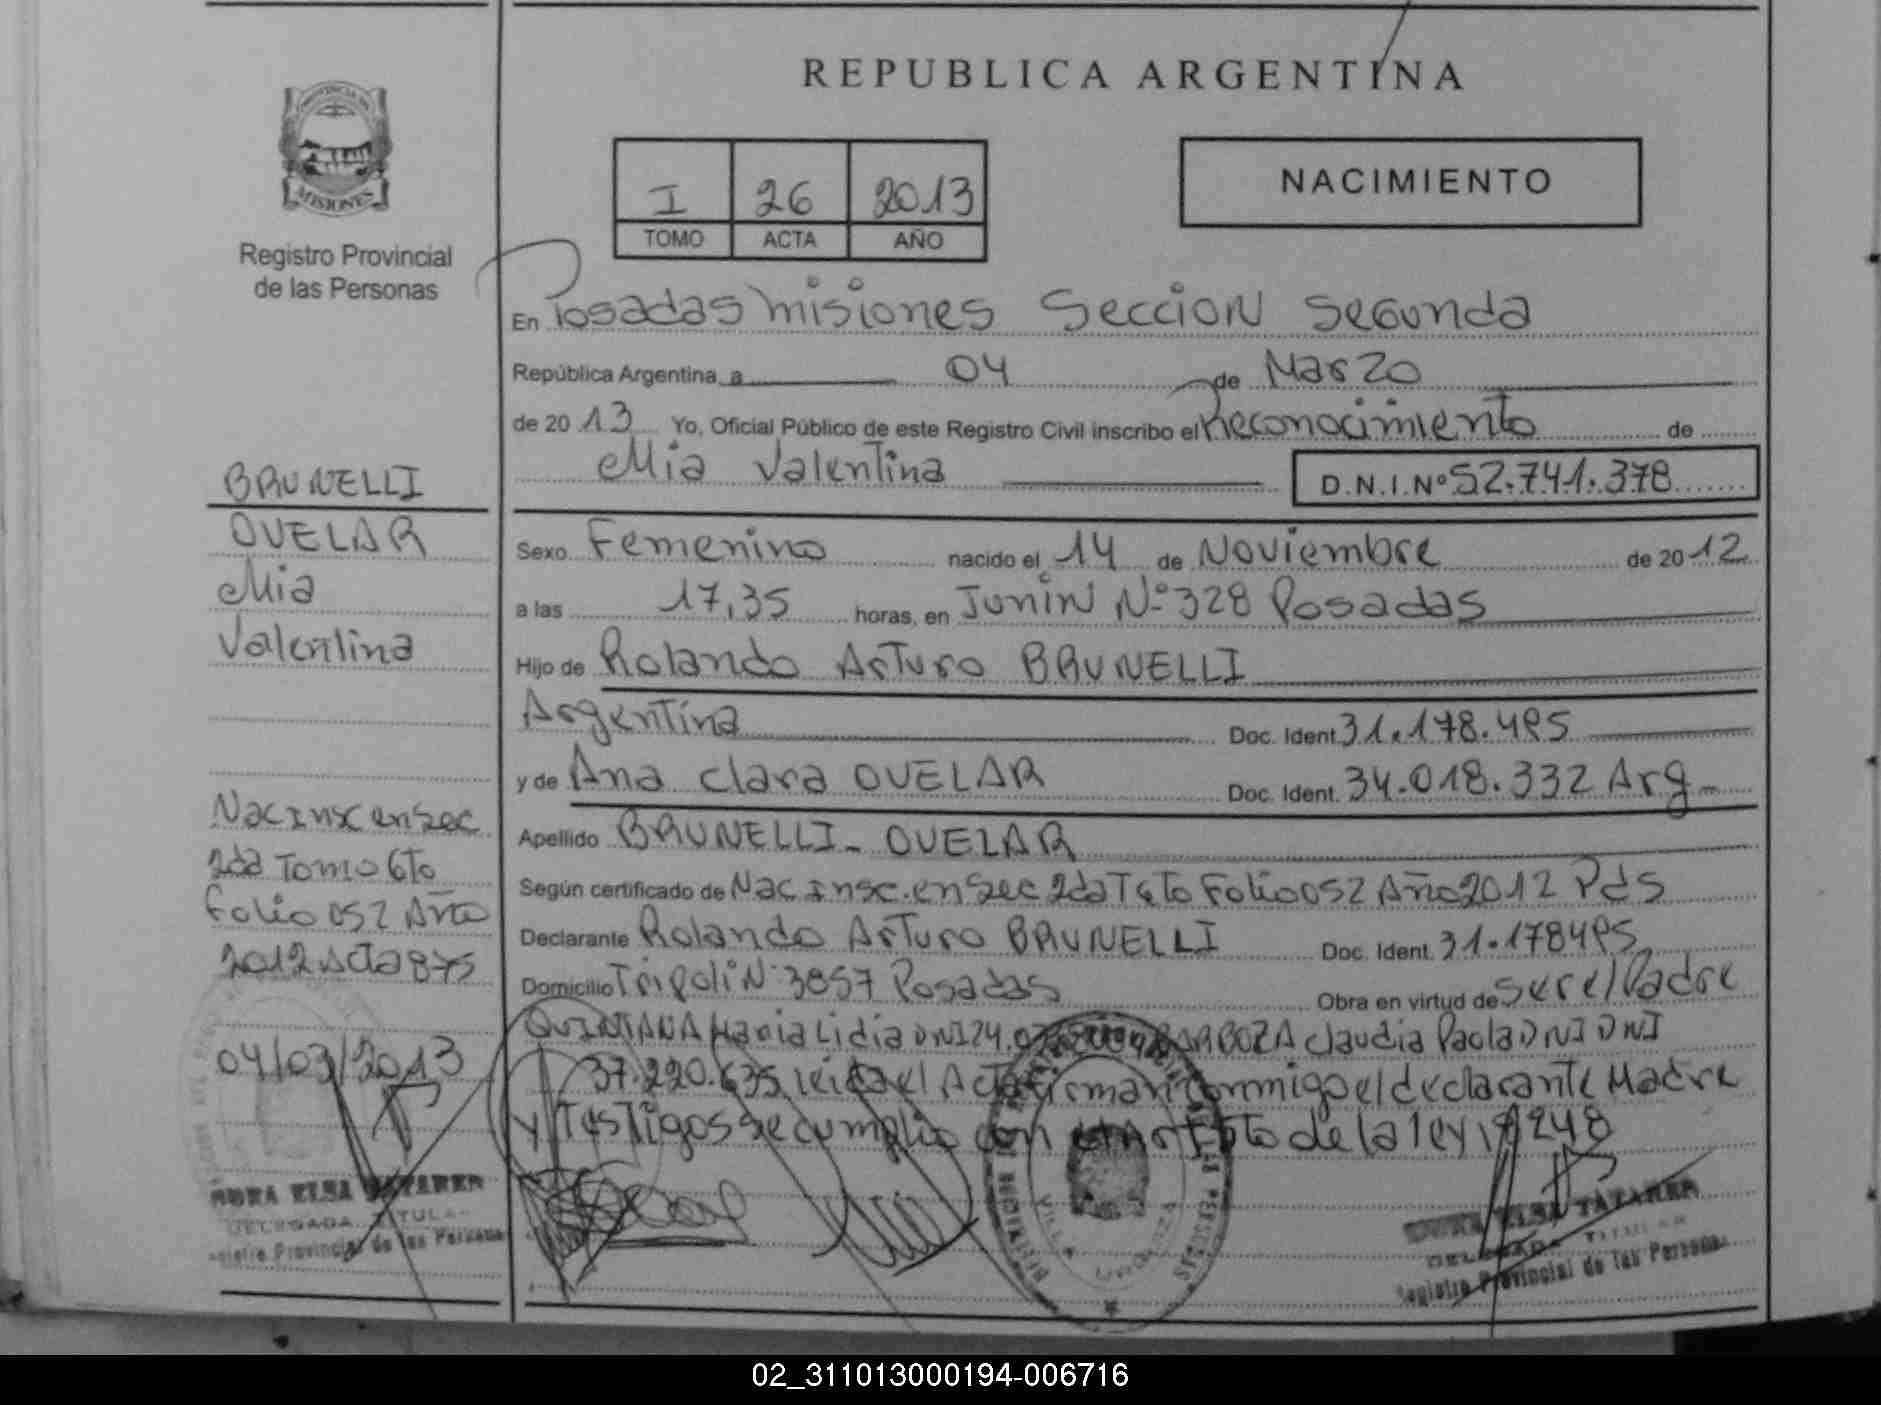 REPUBLICA ARGENTINA
PROVINCIA DE
MISIONES
Registro Provincial
de las Personas
I 26 2013
TOMO ACTA AÑO
NACIMIENTO
En Posadas Misiones Seccion Segunda
República Argentina, a 04 de Marzo
de 2013 Yo, Oficial Público de este Registro Civil inscribo el Reconocimiento de
Mia Valentina D.N.I.Nº 52.741.378
Sexo Femenino nacido el 14 de Noviembre de 2012
a las 17,35 horas, en Junin Nº 328 Posadas
Hijo de Rolando Arturo BRUNELLI
Argentina Doc. Ident. 31.178.495
y de Ana Clara OVELAR Doc. Ident. 34.018.332 Arg
Apellido BRUNELLI - OVELAR
Según certificado de Nac Insc. en Sec 2da T 6to Folio 052 Año 2012 Pds
Declarante Rolando Arturo BRUNELLI Doc. Ident. 31.178495
Domicilio Tripoli N 3857 Posadas Obra en virtud de Ser el Padre
QUINTANA Maria Lidia DNI 24. BARBOZA Claudia Paola DNI DNI
37.220.635 leida el Acta firman conmigo el declarante Madre
y Testigos se cumplio con el Art de la ley 18248
BRUNELLI
OVELAR
Mia
Valentina
Nac Insc en Sec
2da Tomo 6to
Folio 052 Año
2012 Acta 875
04/03/2013
ELSA TATAREN
DELEGADA TITULAR
Registro Provincial de las Personas
VILLA URQUIZA
ELSA TATAREN
DELEGADA TITULAR
Registro Provincial de las Personas
02_311013000194-006716